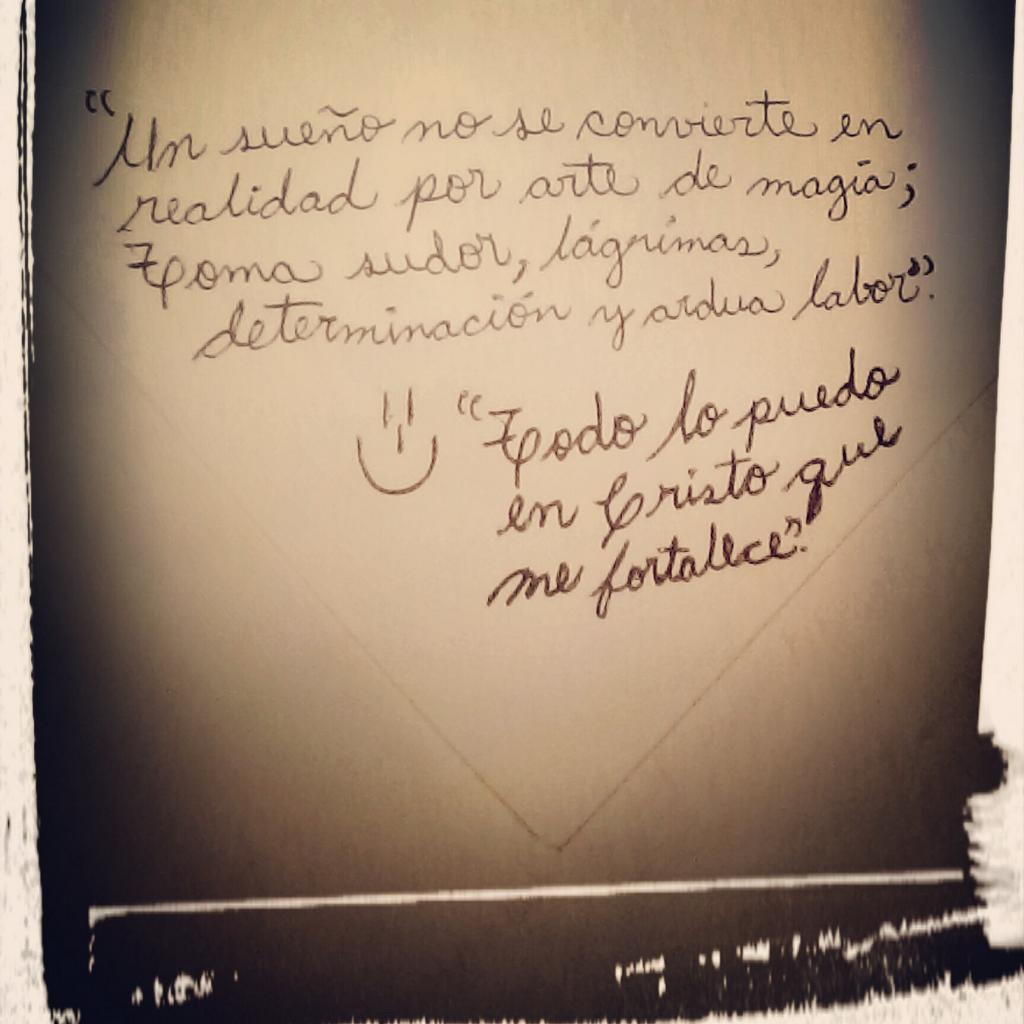 “Un sueño no se convierte en
realidad por arte de magia;
Toma sudor, lágrimas,
determinación y ardua labor”.
“Todo lo puedo
en Cristo que
me fortalece”.